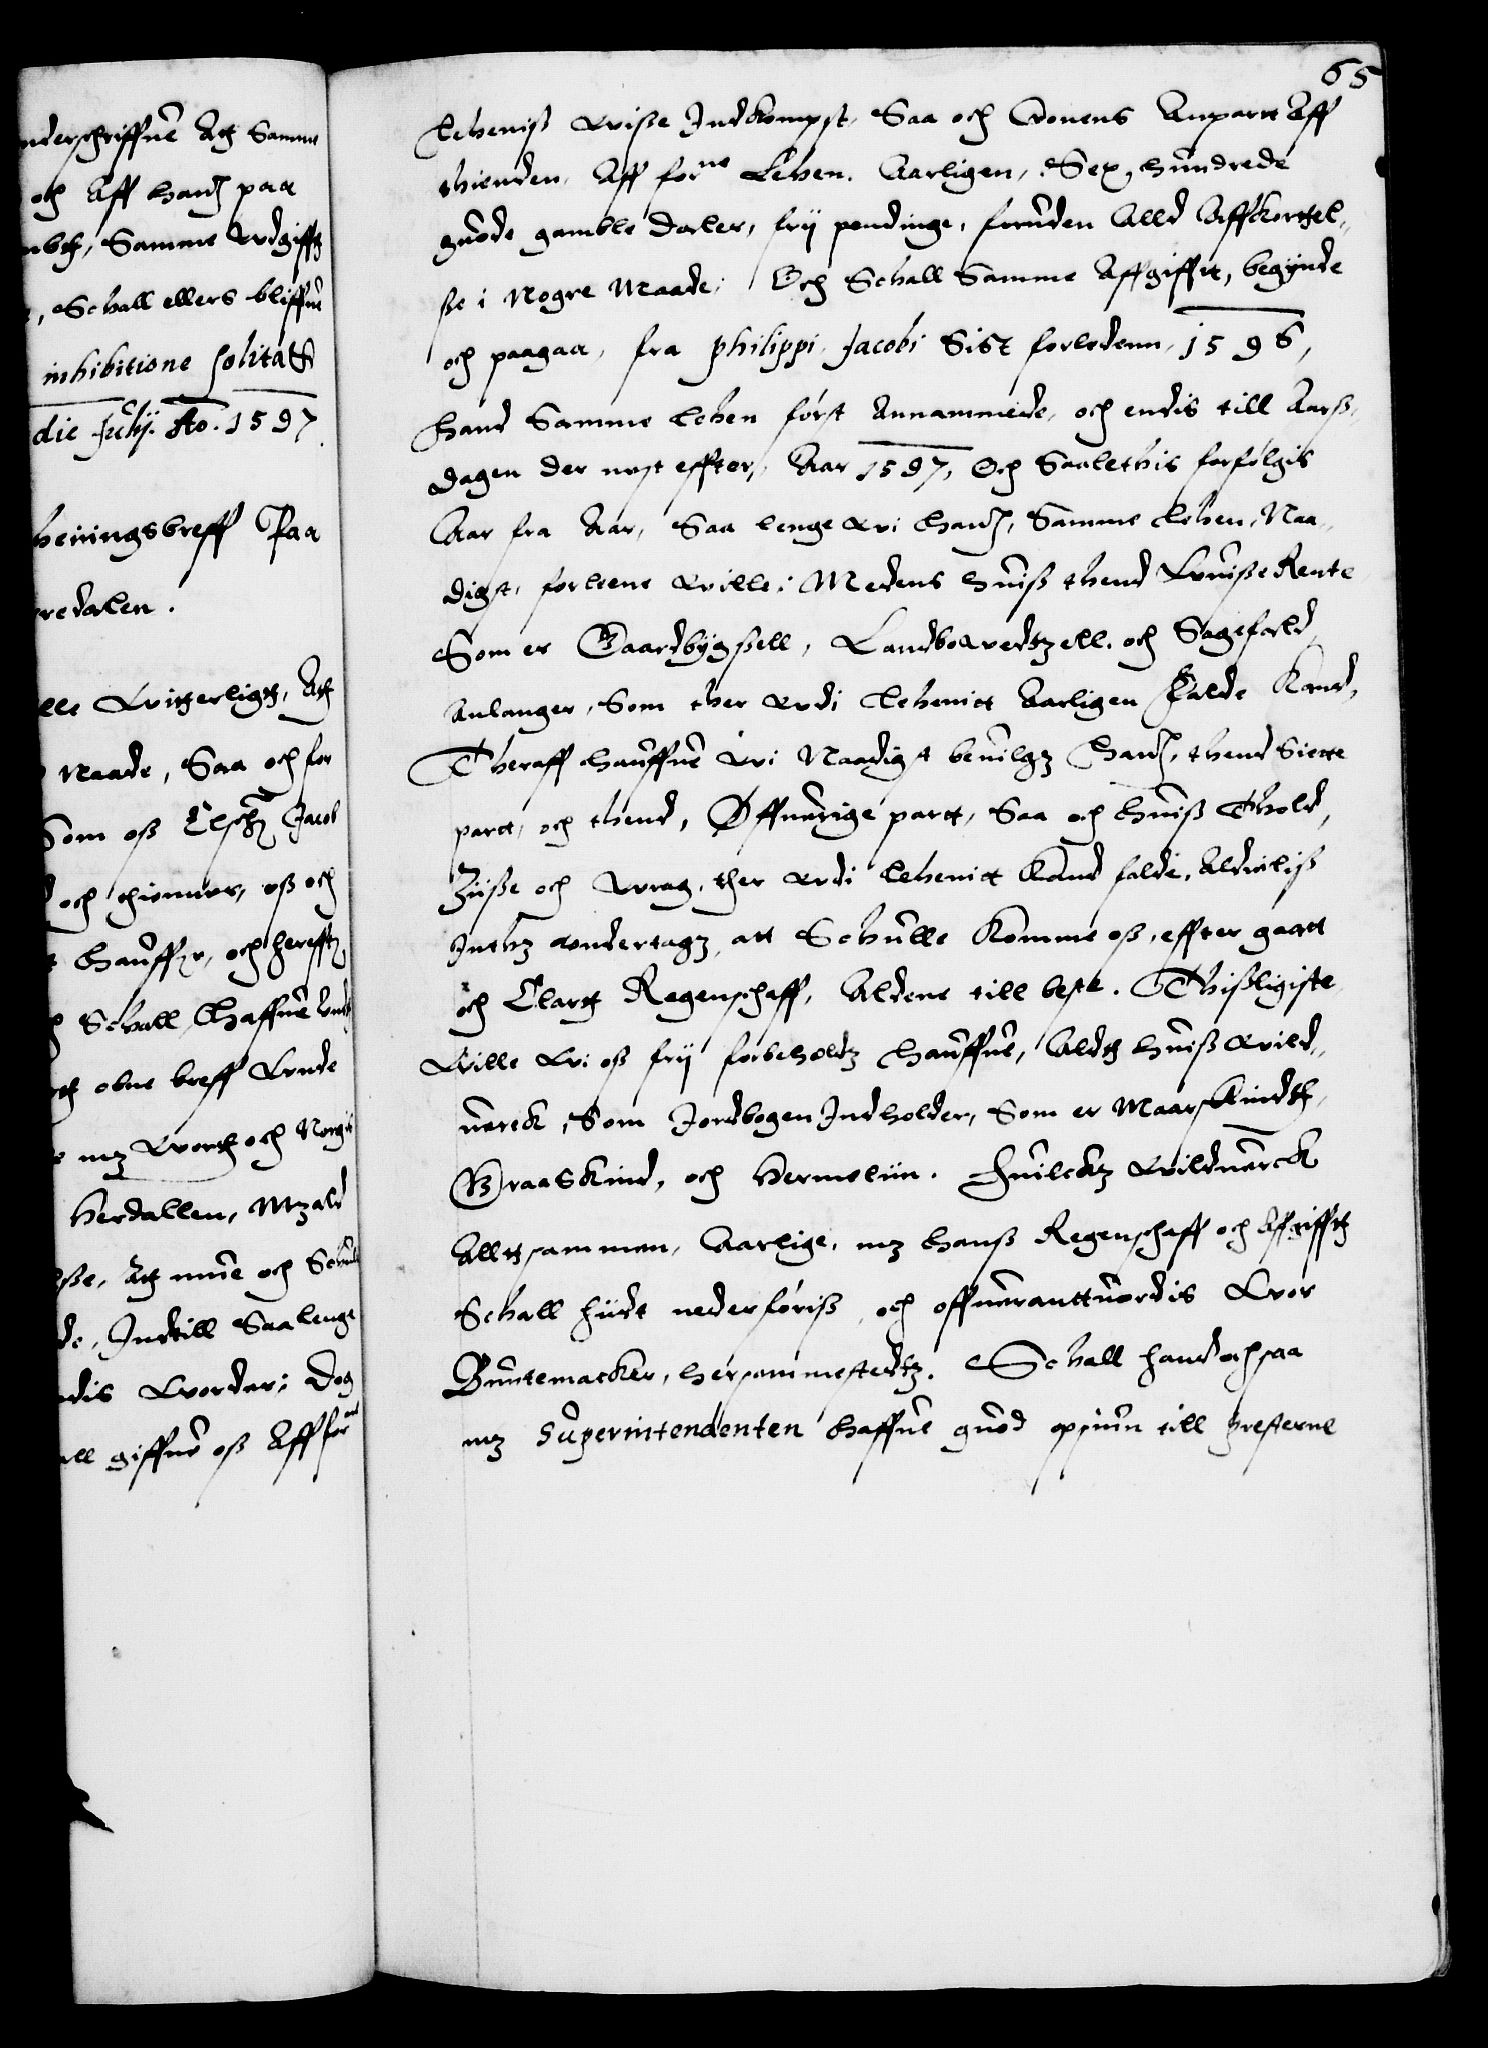 65
nderschriffuit Att Samme
och Aff hand paa
nbtt, Samme Wdgifft
, Schall ellers bliffue
inhibitione solita
die Julij. Ao. 1597
heningsbreff Paa
redalen.
lle Witterligtt, Att
Naade, Saa och for
Som oß Elsch: Jacob
och thienner, oß och
haffuer, och herefft
Schall haffue
tt obne breff Wnde
mz Wortt och Norgis
Herdallen, Mz ald
ße, Att nue och
de, Indtill Saa lenge
dis Worder; Dog
ll giffue oß Aff forne
Leheniß Wiße Indkompst, Saa och Cronens Anpartt Aff
thienden, Aff forne Lehen. Aarligen, Sex, hundrede
guode gamble daler, frij pendinge, foruden Alld Affkorttel-
ße i Nogre Maade; Och Schall Samme Affgifft, begynde
och paagaa, fra Philippi Jacobi Sist forledenn, 1596,
hand Samme Lehen først Annammede, och endis till Aarß-
dagen der nest effter, Aar 1597, Och Saalethis forfølgis
Aar fra Aar, Saa lenge Wi hand, Samme Lehen, Naa-
digst, forleent Wille; Medens huiß thend Wuiße Rente
Som er Gaardbygßell, Landboewedtzell, och Sagefald
Anlanger, Som ther Wdi Lehenitt Aarligen Falde Kand,
Theraff hauffue Wi Naadigst beuilgz hand, thend Siette
partt, och thend, Øffuerige partt, Saa och huiß Thold,
Ziiße och Wrag, ther Wdi Lehenitt Kand falde, Aldieliß
Inthz vondertagz, att Schulle Komme oß, effter gaatt
och Clartt Regenschaff, Aldene till beste. Thißligiste
Wille Wi oß frij forbeholdz hauffue, Aldtt huiß Wild-
uerck, Som Jordbogen Indholder, Som er Maarskindtt,
Graaskind, och Hermeliin. Huilckz Wilduerck
Alttsammen, Aarlige, mz hanß Regenschaff och Affgifftt
Schall hiidt nederføriß, och offuerantuordis Wor
Buntemacker, hersammestedtz. Schall hand ochsaa
mz Superintendenten haffue guod opsiun till Presterne